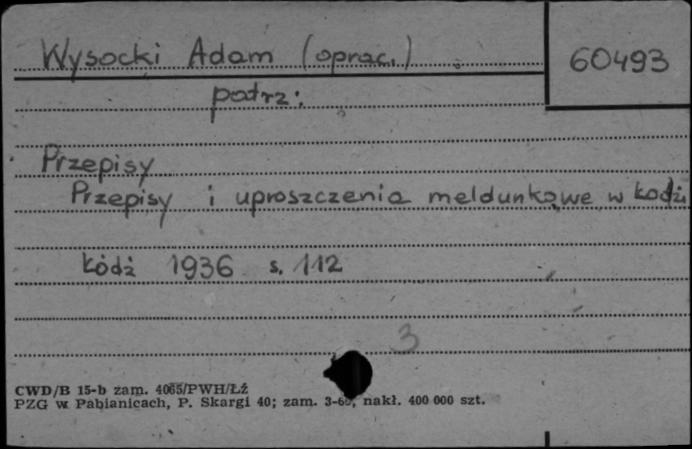 Wysocki Adam (oprac.)
60493
patrz:
Przepisy
Przepisy i uproszczenia meldunkowe w Łodzi
Łódź 1936 s. 112
3
CWD/B 15-b zam. 4065/PWH/ŁŻ
PZG w Pabianicach, P. Skargi 40; zam. nakł. 400 000 szt.